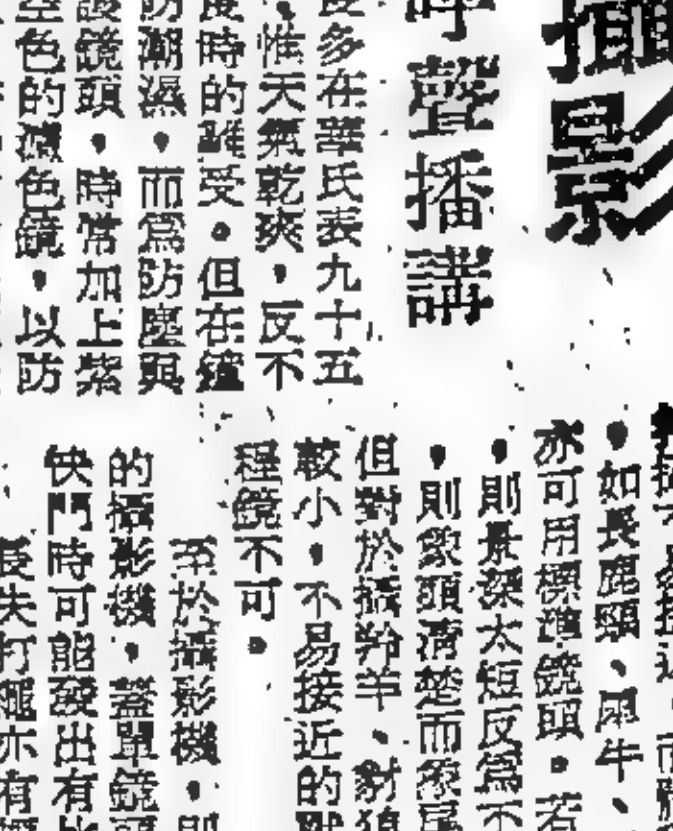 攝影
呼聲播講
度多在華氏表九十五
惟天氣乾爽，反不
度時的難受。但在
防潮濕，而爲防塵與
護鏡頭，時常加上紫
空色的濾色鏡，以防
，如長鹿頸、犀牛、
亦可用標準鏡頭。若
，則景深太短反爲不
，則象頭清楚而象尾
但對於攝羚羊、豺狼
較小，不易接近的獸
程鏡不可。
至於攝影機，則
的攝影機，蓋單鏡頭
快門時可能發出有
長失打
亦有